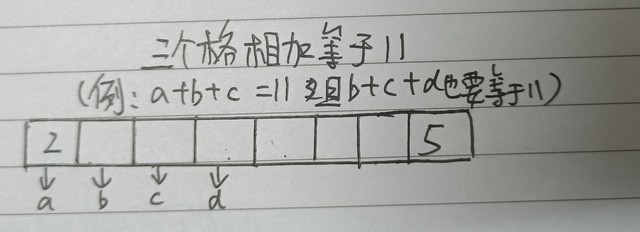 三个格相加等于11
(例: a+b+c=11 且b+c+d也要等于11)
2 5
a b c d